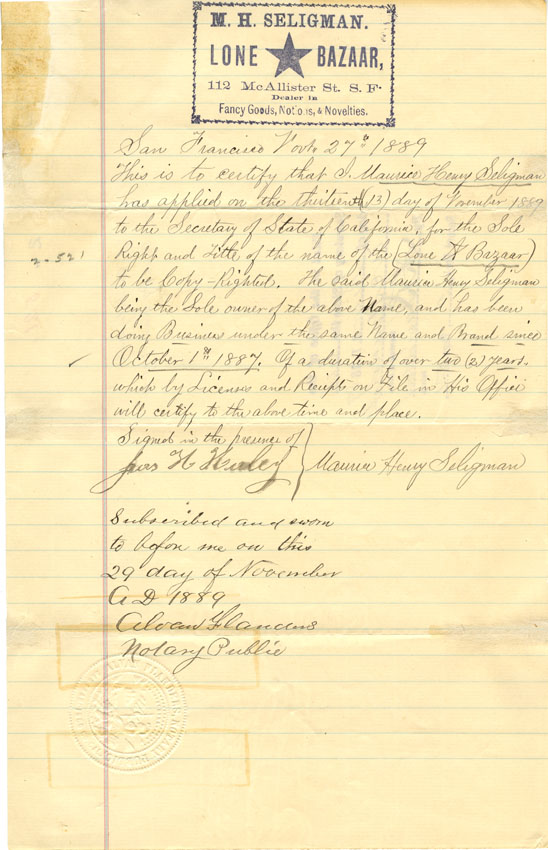 M. H. SELIGMAN.
LONE ★ BAZAAR,
112 McAllister St. S. F.
Dealer in
Fancy Goods, Notions, & Novelties.
San Francisco Novb 27th 1889
This is to certify that I, Maurice Henry Seligman
has applied on the thirteenth (13) day of November 1889
to the Secretary of State of California, for the Sole
Right and Title of the name of the (Lone ★ Bazaar)
2-521
to be Copy-Righted. The said Maurice Henry Seligman
being the Sole owner of the above Name, and has been
doing Business under the same Name and Brand since
October 1st 1887. Of a duration of over two (2) years.
which by Licenses and Receipts on File in His Office
will certify to the above time and place.
Signed in the presence of
Maurice Henry Seligman
Subscribed and sworn
to before me on this
29 day of November
A D 1889
Alvan Flanders
Notary Public